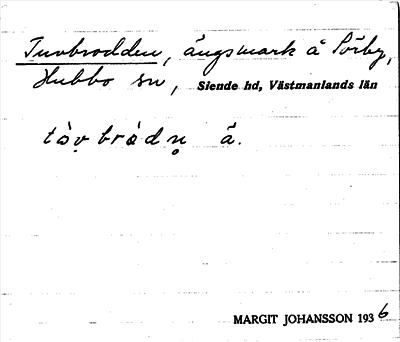 Tuvbrodden, ängsmark å Pörby,
Hubbo sn, Siende hd, Västmanlands län
tòv bròdn̥ ä.
MARGIT JOHANSSON 1936